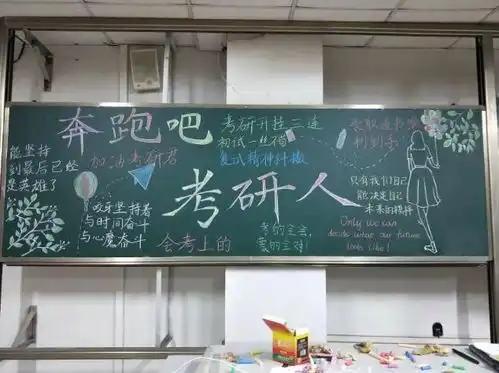 奔跑吧
考研人
能坚持
到最后已经
是英雄了
加油考研君
咬牙坚持着
与时间奋斗
与心魔奋斗
会考上的
考研开挂三连
初试一丝稿
复试精神抖擞
录取通书
考的全会
蒙的全对
只有我们自己
能决定自己
未来的模样
Only we can
decide what our future
looks like!